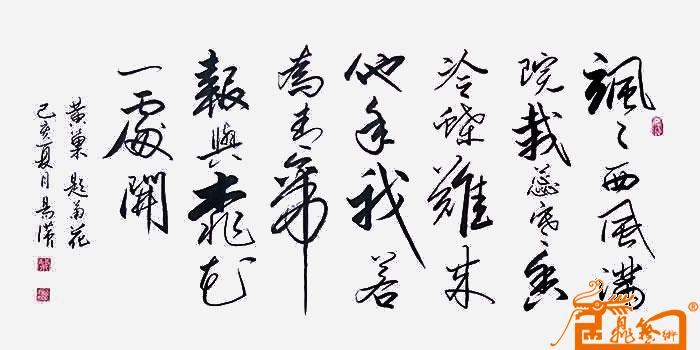 颯々西風滿
院栽蕊寒香
冷蝶難來
他年我若
為青帝
報與桃花
一處開
黃巢 題菊花
己亥夏月